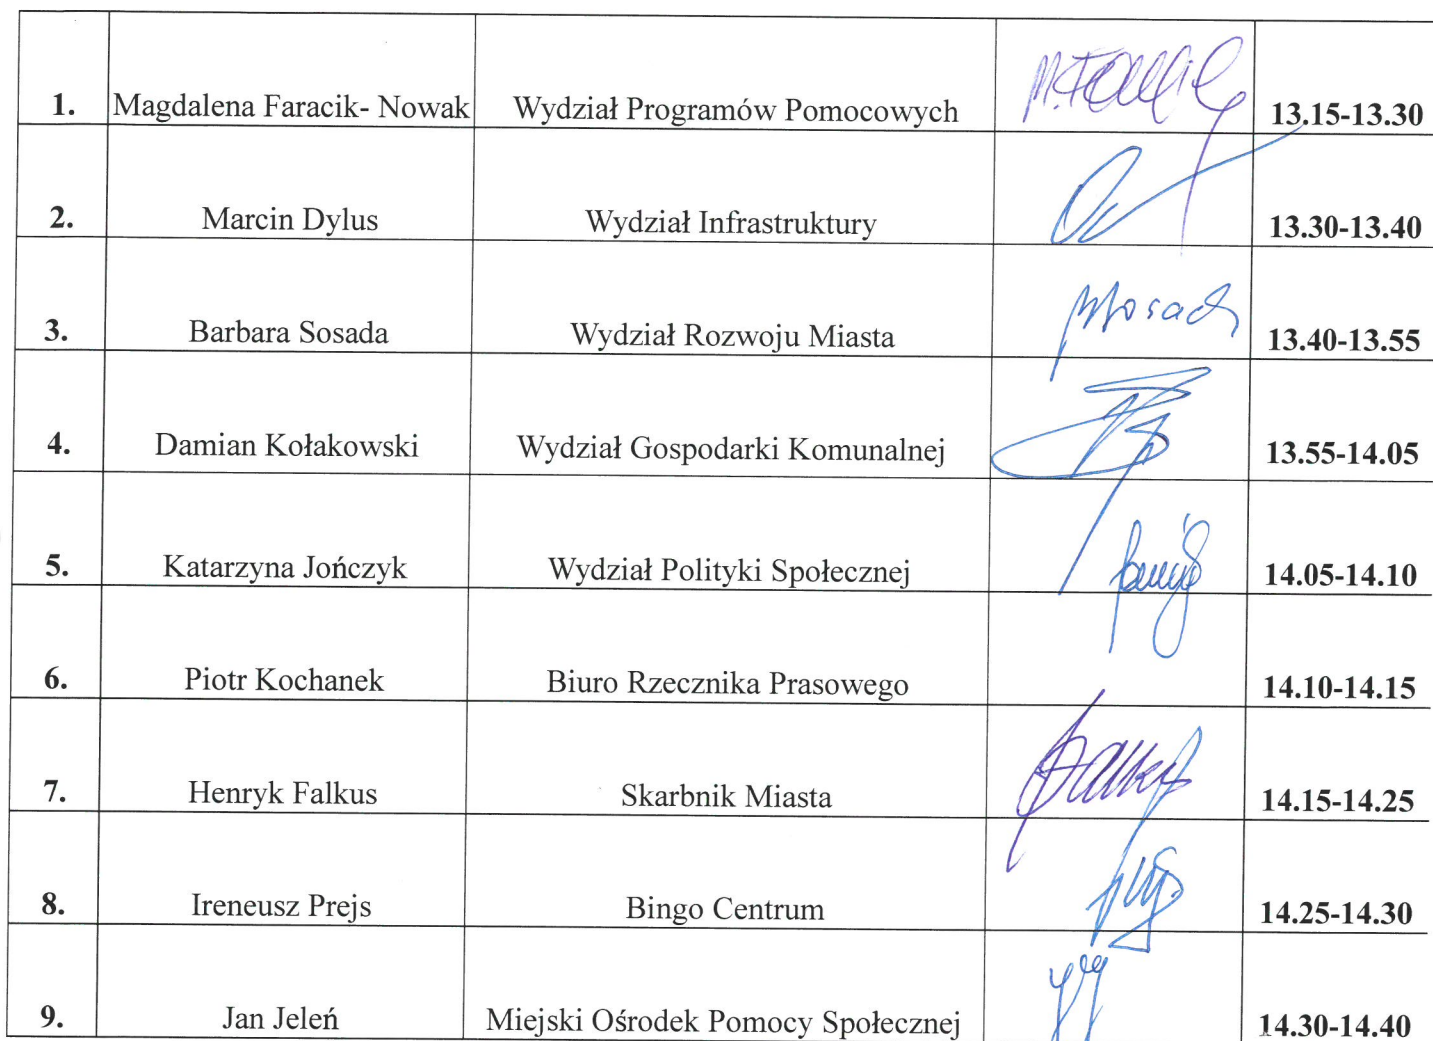 1. Magdalena Faracik- Nowak Wydział Programów Pomocowych 13.15-13.30
2. Marcin Dylus Wydział Infrastruktury 13.30-13.40
3. Barbara Sosada Wydział Rozwoju Miasta 13.40-13.55
4. Damian Kołakowski Wydział Gospodarki Komunalnej 13.55-14.05
5. Katarzyna Jończyk Wydział Polityki Społecznej 14.05-14.10
6. Piotr Kochanek Biuro Rzecznika Prasowego 14.10-14.15
7. Henryk Falkus Skarbnik Miasta 14.15-14.25
8. Ireneusz Prejs Bingo Centrum 14.25-14.30
9. Jan Jeleń Miejski Ośrodek Pomocy Społecznej 14.30-14.40